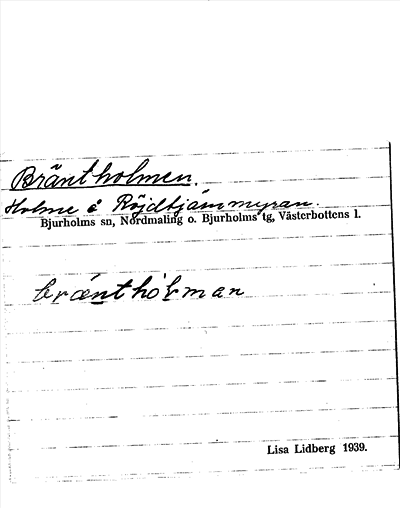 Bräntholmen.
Holme å Röjdtjämmyran.
Bjurholms sn, Nordmaling o. Bjurholms tg, Västerbottens l.
bræntholman
Lisa Lidberg 1939.